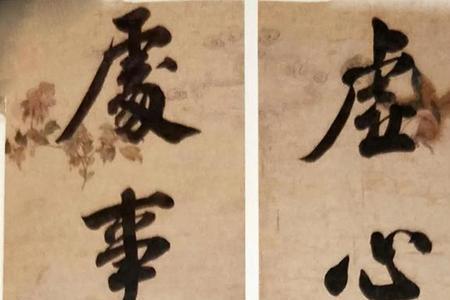 虛心
處事